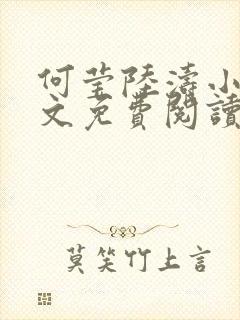 何莹陸濤小
文免費閱讀
莫笑竹上言